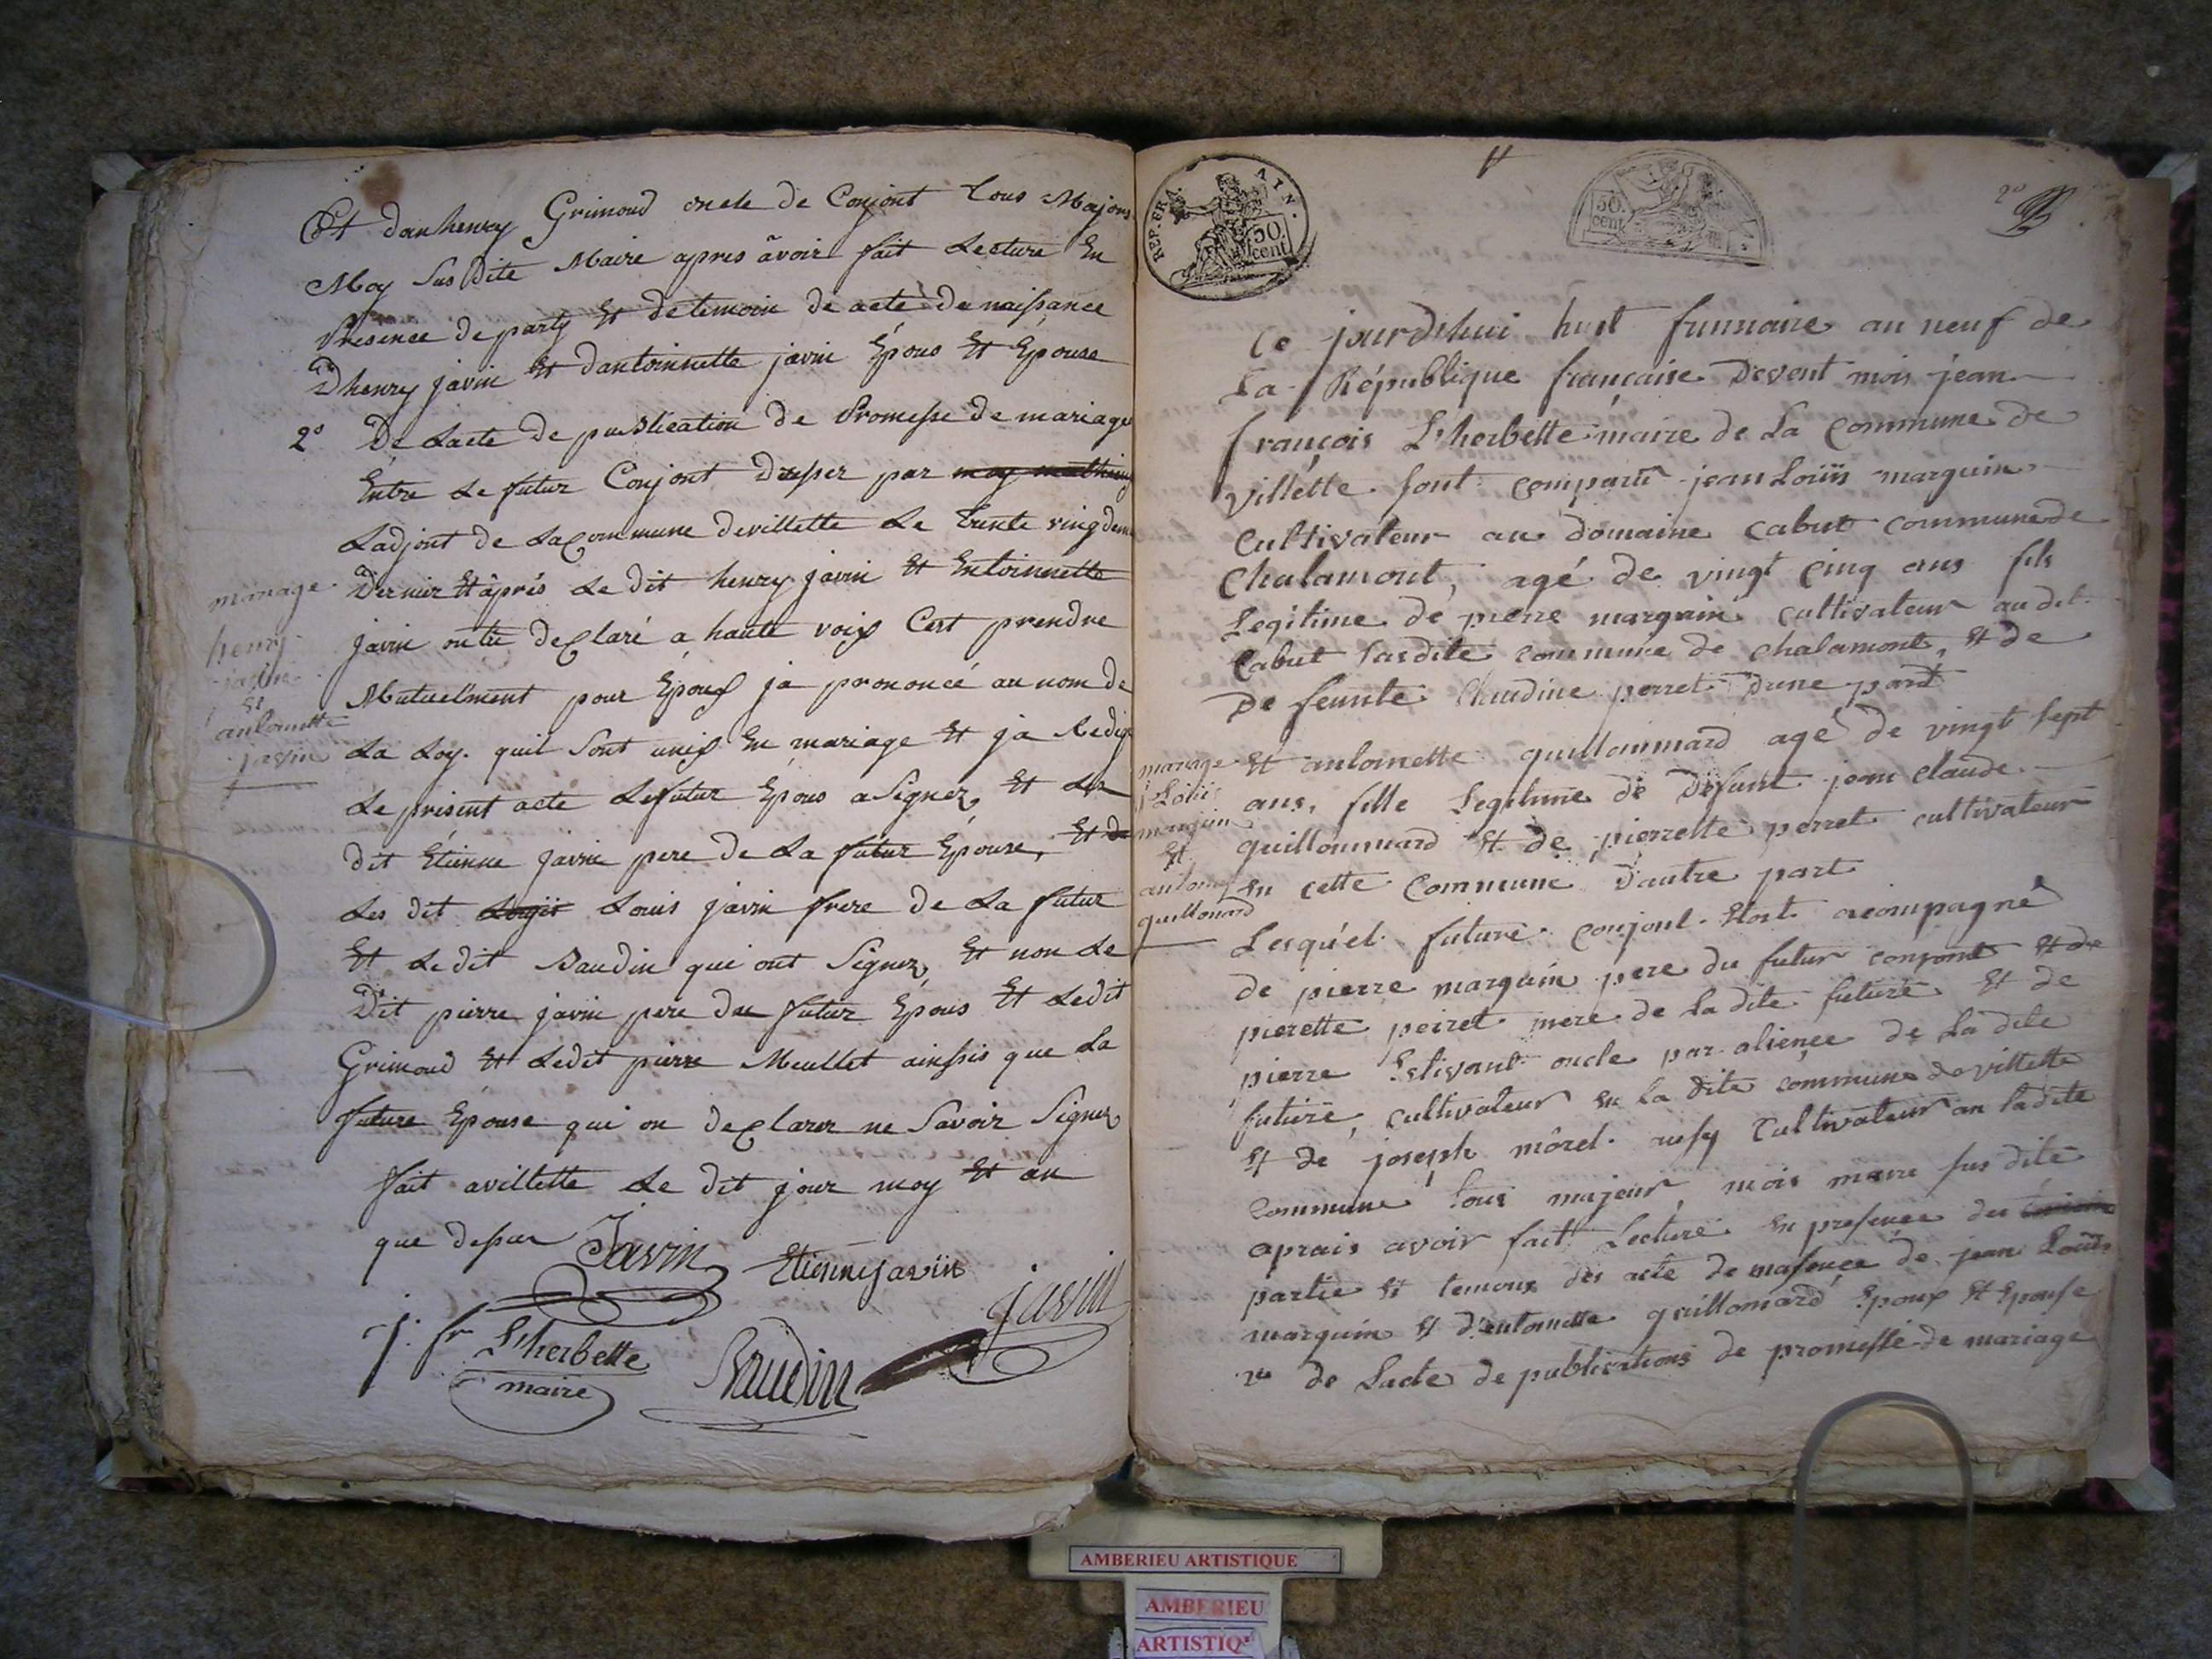 Et danhenry Grimoud oncle de Conjont tous Majeurs
Moy Sus Dite Maire apres avoir fait Lecture En
Presence de party Et de temoin de acte de naissance
Dhenry javin Et dantoinette javin Epous Et Epouse
2° De Lacte de publication de Promesse de mariage
Entre Le futur Conjont Dresser par
Ladjont de La Commune devillette Le trente vingdem
Dernier Et après Le dit henry javin Et Entoinnette
javin ontu declaré a haute voix Cest prendre
Mutuelment pour Epoux ja prononcé au nom de
La Loy. quil Sont unix En mariage Et ja Redige
Le present acte Le futur Epous a Signez, Et Le
dit Etienne javin pere de La futur Epouse, Et de
Les dit Louis javin frere de La futur
Et Le dit Baudin qui ont Signez, Et non Le
Dit pierre javin pere du futur Epous Et Ledit
Grimoud Et Ledit pierre Meullet ainssis que La
future Epouse qui on declarer ne Savoir Signez
fait avillette Le dit jour moy Et an
que dessus
Javin
Etienne javin
javin
j. fr L'herbette
maire
Baudin
mariage
henry
javin
Et
antoinette
javin
REP. FRA. AIN.
50.
cent
50.
cent
2°
Ce jourd'hui huit frimaire an neuf de
La République française Devent mois jean
françois L'herbette maire de La Commune de
villette sont comparu jean Loüis marguin
Cultivateur au domaine Cabut commune de
Chalamont, agé de vingt cinq ans fils
Legitime de pierre marguin cultivateur au dit
Cabut susdite commune de chalamont, Et de
De feunte Claudine perret D'une part
Et antoinette guillommard agé de vingt sept
ans, fille Legitime de Défunt jean claude
guillommard Et de pierrette perret cultivateur
En cette Commune D'autre part
Lesquel future conjont Etort acompagné
de pierre marguin pere du futur conjont Et de
pierette peiret mere de la dite future Et de
pierre Estivant oncle par alience de La dite
future, cultivateur En la dite commune de villette
Et de joseph môrel Cultivateur an ladite
Commune tous majeur, mois maire sus dite
aprais avoir fait Lecture En presence des
partie Et temoux des acte de nassence de jean Loüis
marguin Et d'entoinette guillomard Epoux Et Epouse
2° de Lacte de publications de promesse de mariage
mariage
j Loüis
marguin
Et
antoin
guillomard
AMBERIEU ARTISTIQUE
AMBERIEU
ARTISTIQ